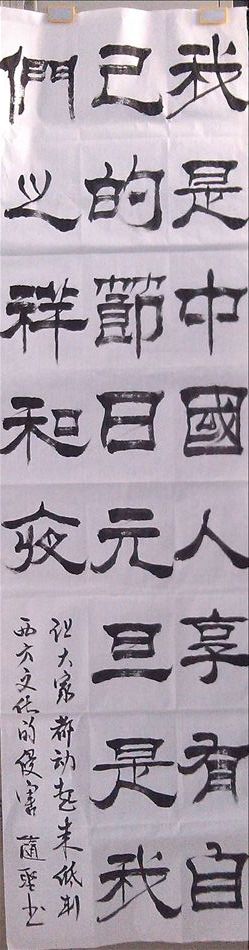 我是中國人享有自
己的節日元旦是我
們之祥和夜
让大家都动起来低制
西方文化的侵害 书